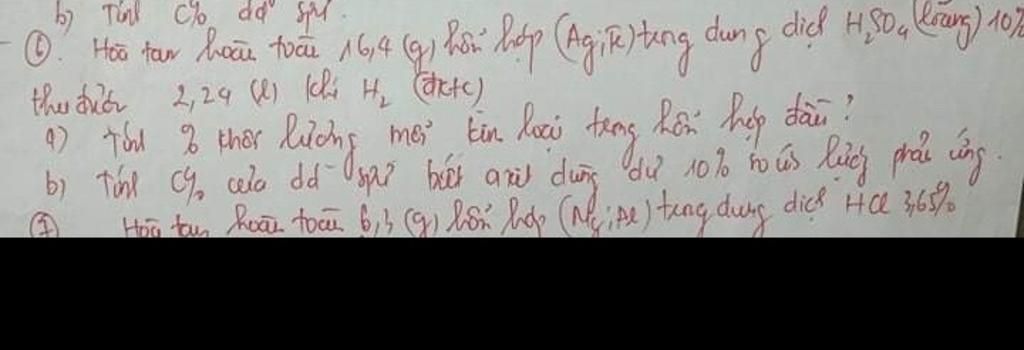 b) Tính C% dd spư.
- ⑥. Hoà tan hoàn toàn 16,4 (g) hỗn hợp (Ag; Fe) trong dung dịch H₂SO₄ (loãng) 10%
thu được 2,24 (l) khí H₂ (đktc)
a) Tính % khối lượng mỗi kim loại trong hỗn hợp đầu?
b) Tính C% của dd spư biết axit dùng dư 10% so với lượng phản ứng.
⑦ Hoà tan hoàn toàn 6,3 (g) hỗn hợp (Mg; Al) trong dung dịch HCl 3,65%